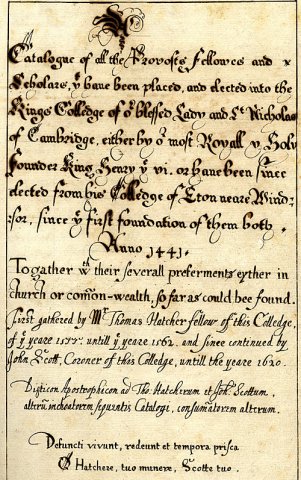 A
Catalogue of all the Provosts Fellowes and
Scholars, yt have been placed, and elected into the
Kings Colledge of or blessed Lady and St Nicholas
of Cambridge, either by or most Royall & Holy
Founder King Henry ye vi. or have been since
elected from his Colledge of Eton neare Wind-
sor, since ye first foundation of them both.
Anno 1441.
Togather wth their severall preferments eyther in
church or com̄on-wealth, so far as could bee found.
First gathered by Mr Thomas Hatcher fellow of this Colledge,
of ye yeare 1555. untill ye yeare 1562. and since continued by
John Scott, Coroner of this Colledge, untill the yeare 1620.
Disticon Apostrophicon ad Tho. Hatcherum et Joh. Scottum,
alterū inchoatorem sequentis Catalogi, consumatorem alterum.
Defuncti vivunt, redeunt et tempora prisca
O Hatchere, tuo munere, Scotte tuo.